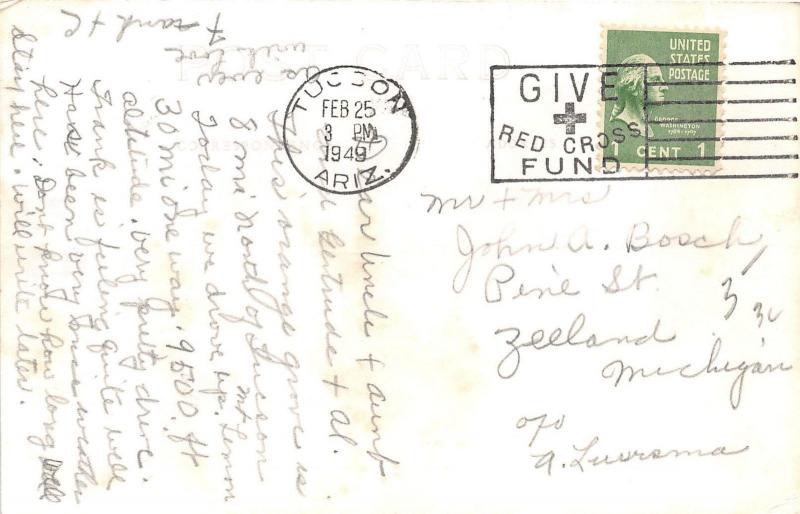 POST CARD
TUCSON
FEB 25
3 PM
1949
ARIZ.
GIVE
RED CROSS
FUND
UNITED
STATES
POSTAGE
GEORGE
WASHINGTON
1789-1797
CENT 1
Dear Uncle + Aunt
Gertrude + Al.
This orange grove is
8 mi north of Tucson
Today we drove up Mt Lemon
30 mi one way. 9500 ft
altitude. Very pretty drive.
Frank is feeling quite well
Has been very weather
here. Dont know how long Well
Stay here. Will write later.
as ever
with love
Frank + C
Mr + Mrs
John A. Bosch,
Pine St.
Zeeland
Michigan
c/o
A.